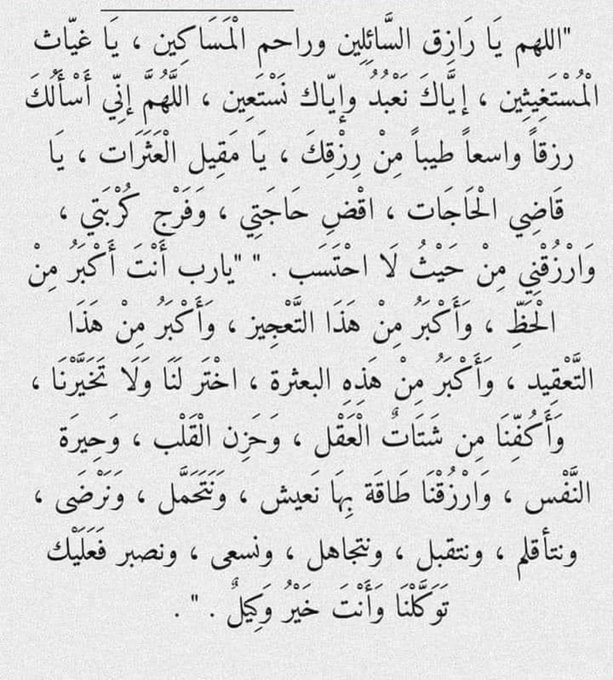 "اللهم يَا رَازِق السَّائِلِين وراحم الْمَسَاكِين ، يَا غيّاث
الْمُسْتَغِيثِين ، إيَّاكَ نَعْبُدُ وإيّاك نَسْتَعِين ، اللَّهُمَّ إنِّي أَسْأَلُكَ
رزقاً واسعاً طيباً مِنْ رِزْقِكَ ، يَا مَقِيل الْعَثَرَات ، يَا
قَاضِي الْحَاجَات ، اقْضِ حَاجَتِي ، وَفَرْج كُرْبَتِي ،
وَارْزُقْنِي مِنْ حَيْثُ لَا احْتَسَب . " "يارب أَنْتَ أَكْبَرُ مِنْ
الْحَظِّ ، وَأَكْبَرُ مِنْ هَذَا التَّعْجِيز ، وَأَكْبَرُ مِنْ هَذَا
التَّعْقِيد ، وَأَكْبَرُ مِنْ هَذِهِ البعثرة ، اخْتَر لَنَا وَلَا تَخَيَّرْنَا ،
وَأَكُفِّنَا مِن شَتَاتٌ الْعَقْل ، وَحَزِن الْقَلْب ، وَحِيرَة
النَّفْس ، وَارْزُقْنَا طَاقَة بِهَا نَعيش ، وَنَتَحَمَّل ، وَنَرْضَى ،
ونتأقلم ، ونتقبل ، ونتجاهل ، ونسعى ، ونصبر فَعَلَيْك
تَوَكَّلْنَا وَأَنْتَ خَيْرُ وَكِيلٌ . " .